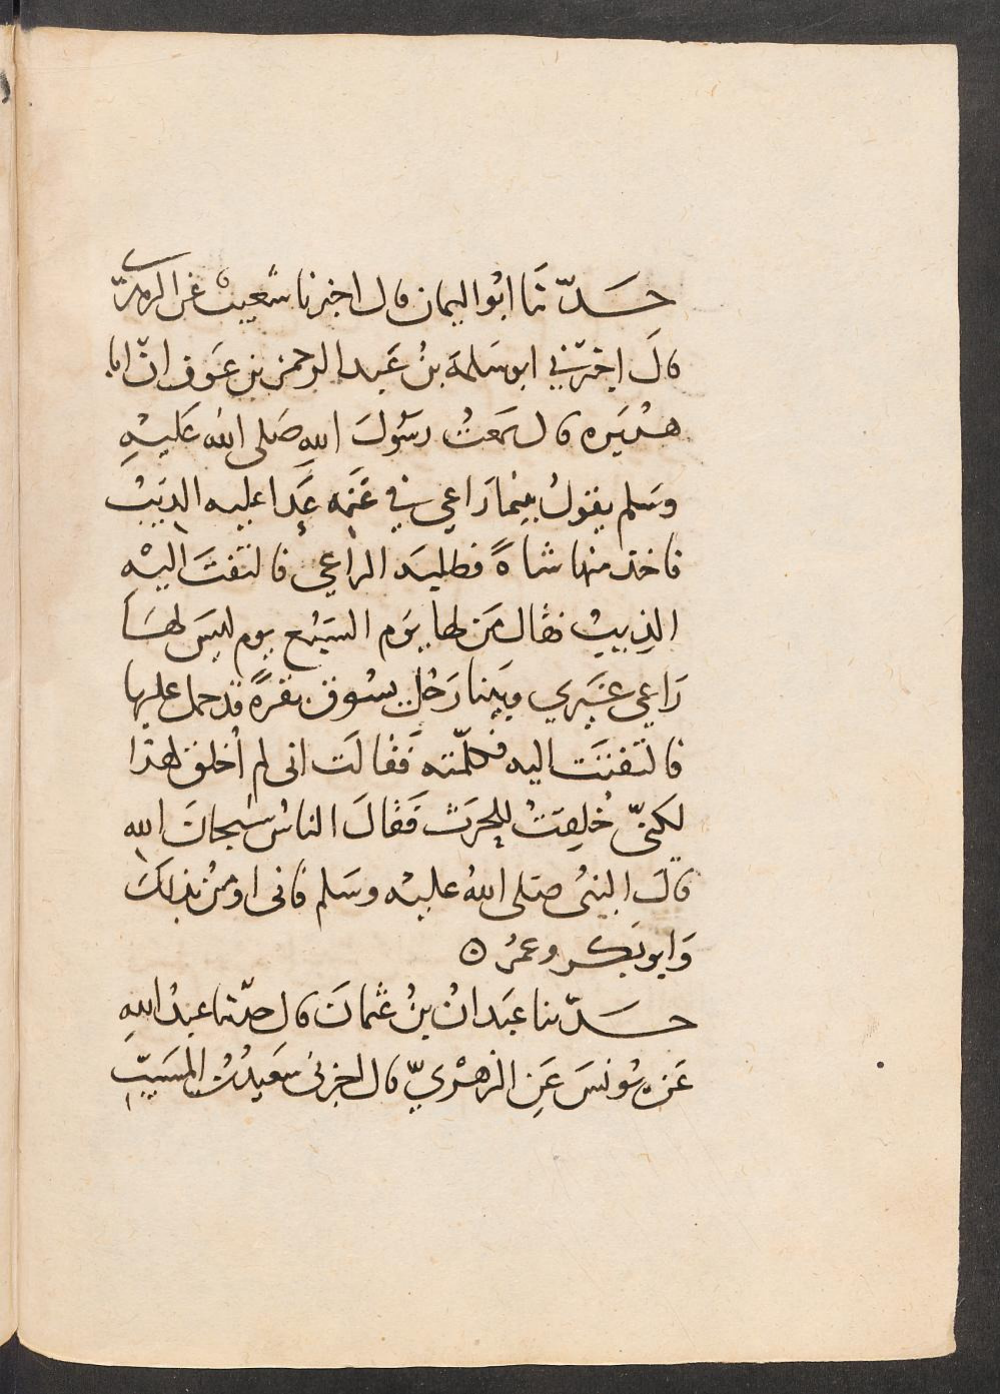 حدّثنا ابو اليمان قال اخبرنا شعيب عن الزهريّ
قالَ اخبرَني ابو سَلمة بنُ عَبد الرحمن بن عَوف انّ ابا
هُرَيره قال سَمعتُ رسُولَ اللهِ صَلى الله عَليْهِ
وسَلم يقولُ بينما رَاعي في غَنَمِه عَدا عليه الذيبُ
فاخذ منها شاةً فطلبَه الراعي فالتفتَ اليْه
الذِيبُ فقال مَن لها يَوم السَبُع يوم ليسَ لهَا
رَاعي غيَري وبَينا رَجُل يسُوق بقرةً قد حمل عليها
فالتفتَت اليه فكلّمته فَقالَت انى لم أخلق لهذا
لكنّى خُلِقتُ للحَرث فَقالَ الناسُ سُبحانَ الله
قالَ النبيُ صَلى اللهُ عليْه وسَلم فانى اومنُ بذلكَ
وَابو بَكر وعمرُ ۞
حدّثنا عَبدانُ بنُ عثمانَ قال حدّثنا عبدُ اللهِ
عَن يونسَ عَنِ الزهْريّ قال اخبرنى سَعيدُ بنُ المسَيّبِ